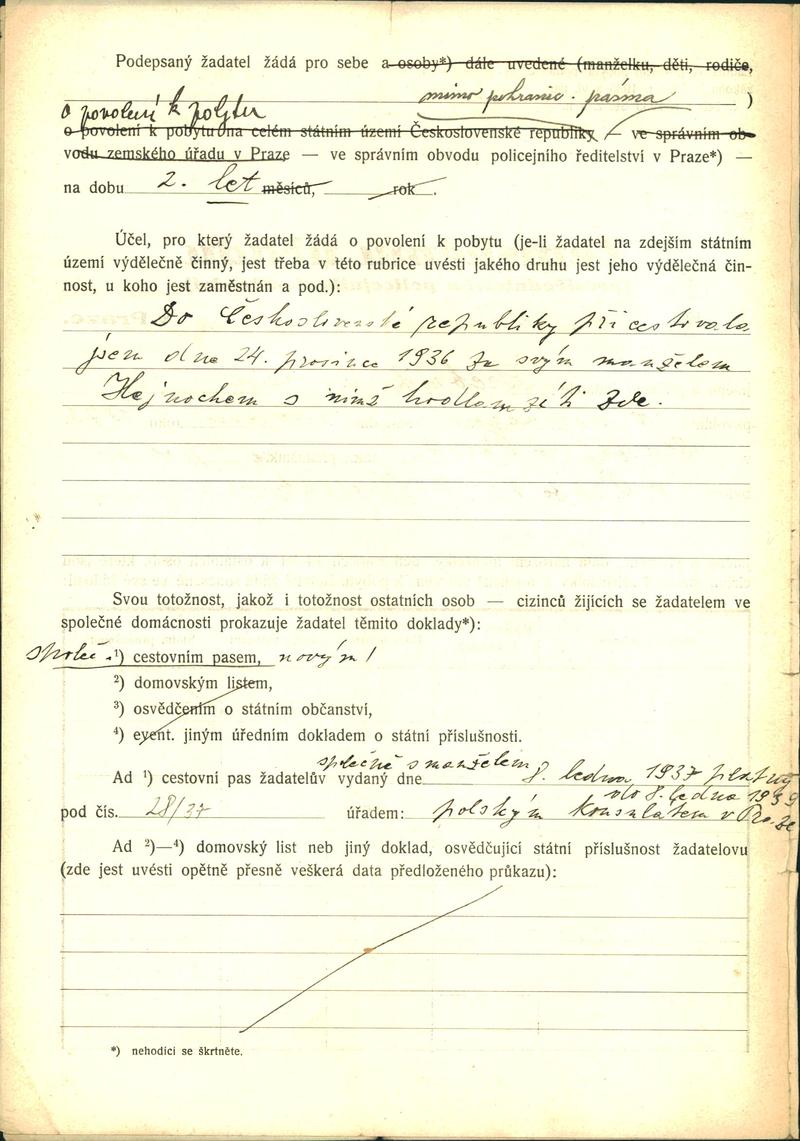 Podepsaný žadatel žádá pro sebe a osoby*) dále uvedené (manželku, děti, rodiče,
mimo pohranic. pásma )
o povolení k pobytu
o povolení k pobytu na celém státním území Československé republiky — ve správním ob-
vodu zemského úřadu v Praze — ve správním obvodu policejního ředitelství v Praze*) —
na dobu 2. let měsíců, rok .
Účel, pro který žadatel žádá o povolení k pobytu (je-li žadatel na zdejším státním
území výdělečně činný, jest třeba v této rubrice uvésti jakého druhu jest jeho výdělečná čin-
nost, u koho jest zaměstnán a pod.):
Do Československé republiky přicestovala
jsem dne 24. prosince 1936 se svým manželem
Hejnochem s nimž hodlam žíti zde.
Svou totožnost, jakož i totožnost ostatních osob — cizinců žijících se žadatelem ve
společné domácnosti prokazuje žadatel těmito doklady*):
společ. ¹) cestovním pasem, novým!
²) domovským listem,
³) osvědčením o státním občanství,
⁴) event. jiným úředním dokladem o státní příslušnosti.
společně s manželem
Ad ¹) cestovní pas žadatelův vydaný dne 8. ledna 1937 platný
do 8. ledna 1939
pod čís. 28/37 úřadem: polským konsulátem v Praze
Ad ²)—⁴) domovský list neb jiný doklad, osvědčující státní příslušnost žadatelovu
(zde jest uvésti opětně přesně veškerá data předloženého průkazu):
*) nehodící se škrtněte.